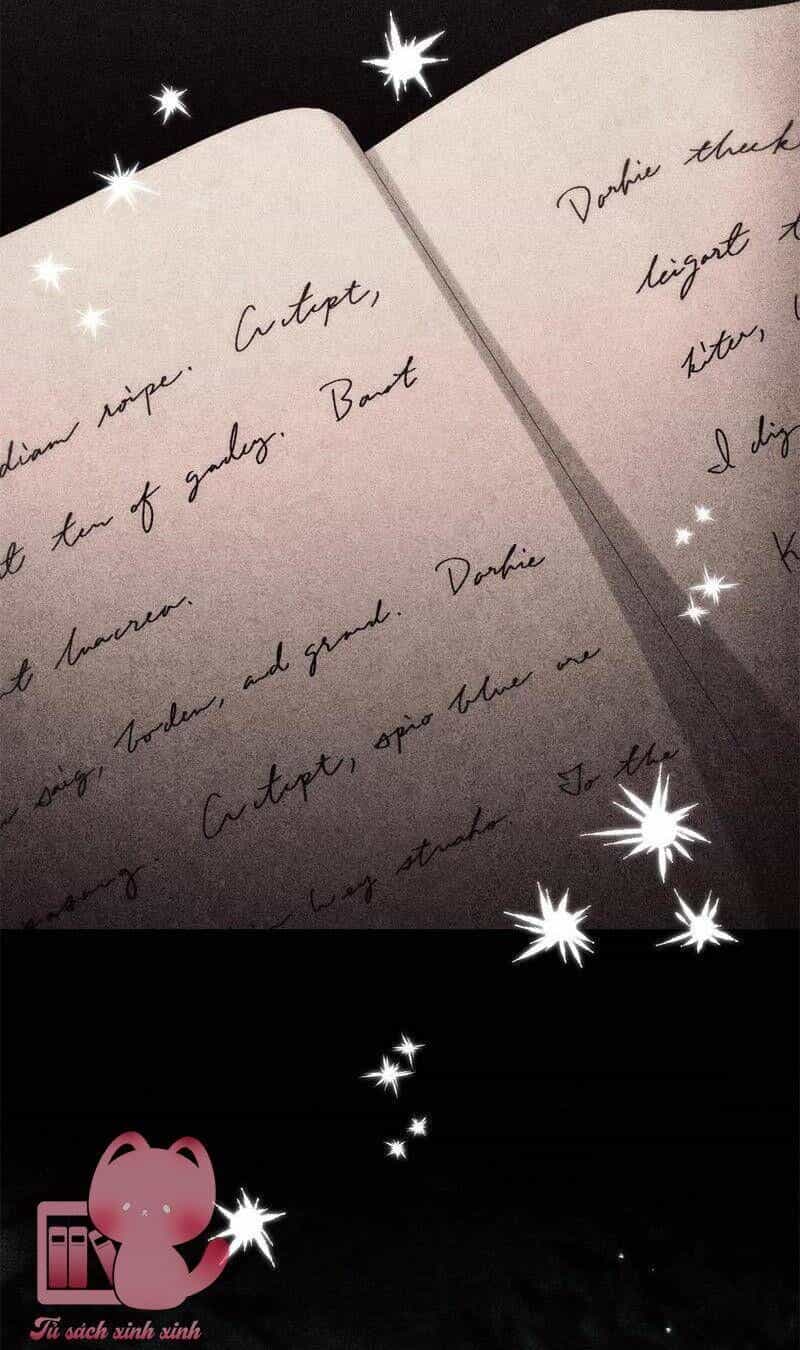 diam ròipe. Cr ctept,
t ten of gadey. Barot
nt luacrea.
saig, boden, and grmd. Dorhie
Cr ctept, spio blue ore
hey struaho. To the
Dorhie theek
leigart t
kiter,
I dig
K
Tủ sách xinh xinh